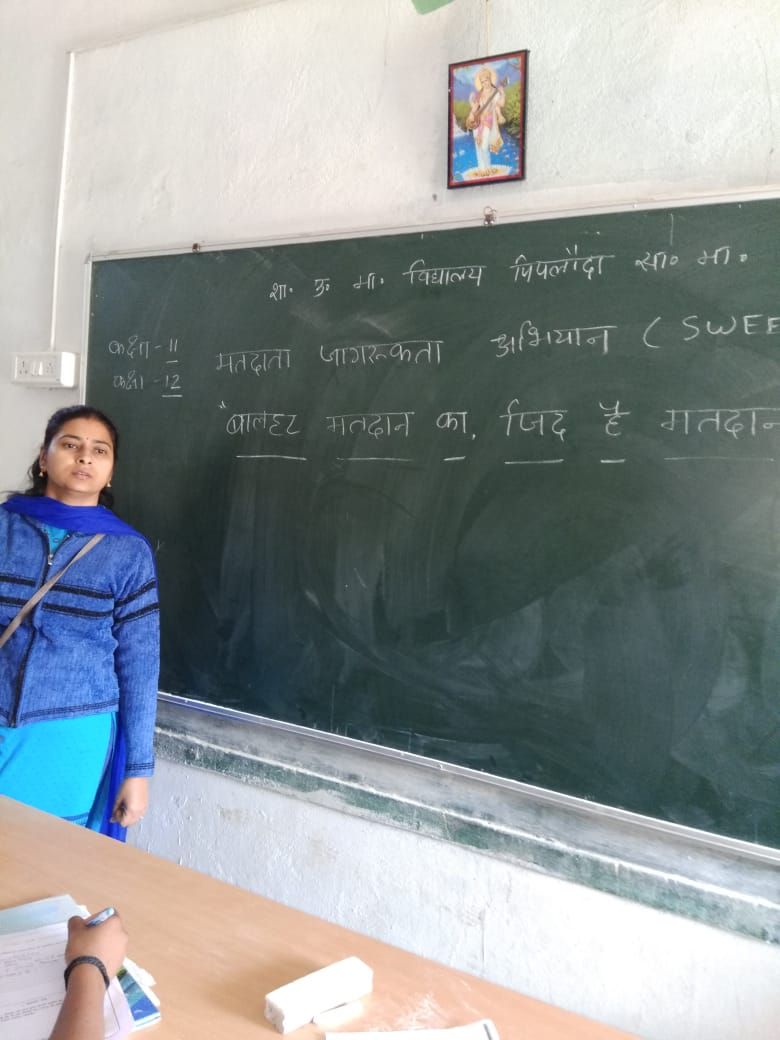 शा. उ. मा. विद्यालय पिपलौदा सा॰ मा॰
कक्षा - 11
कक्षा - 12
मतदाता जागरूकता अभियान ( SWEE
"बालहट मतदान का, जिद है मतदान